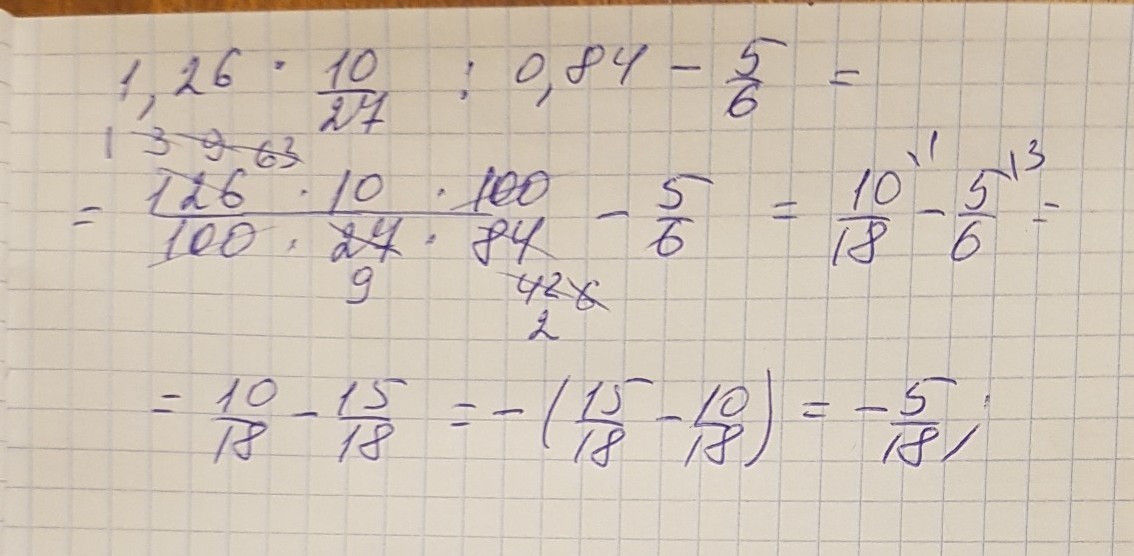 1,26 · 10/27 : 0,84 - 5/6 =
1 3 9 63
= 126 · 10 · 100 / 100 · 27 · 84 - 5/6 = 10/18 \1 - 5/6 \3 =
9 42 6
2
= 10/18 - 15/18 = - (15/18 - 10/18) = - 5/18;